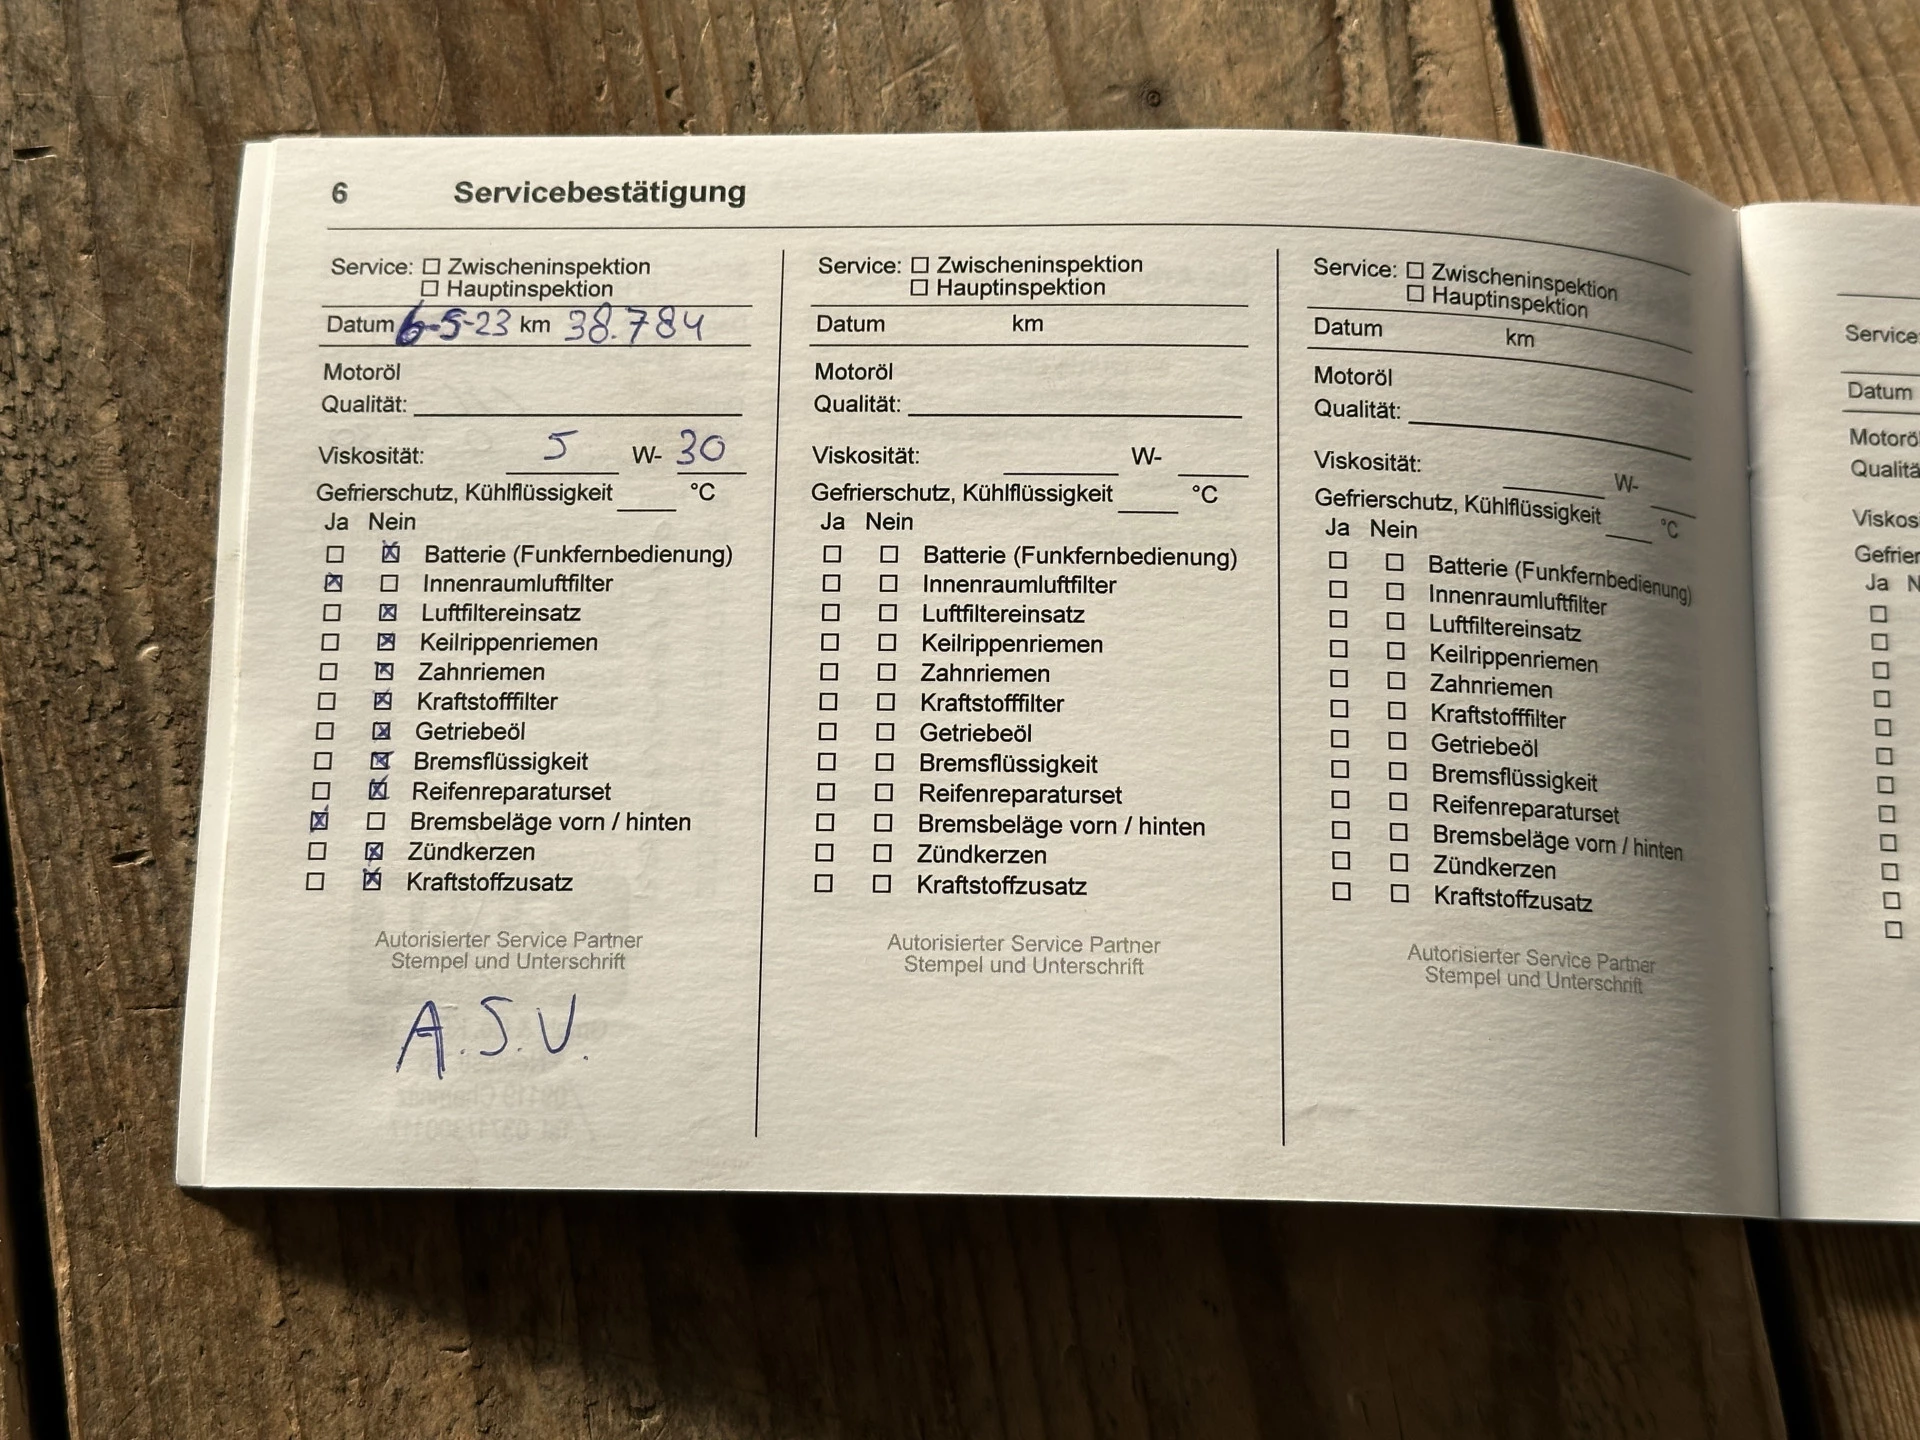 6 Servicebestätigung
Service: ☐ Zwischeninspektion
☐ Hauptinspektion
Datum 6-5-23 km 38.784
Motoröl
Qualität:
Viskosität: 5 W- 30
Gefrierschutz, Kühlflüssigkeit °C
Ja Nein
☐ ☒ Batterie (Funkfernbedienung)
☒ ☐ Innenraumluftfilter
☐ ☒ Luftfiltereinsatz
☐ ☒ Keilrippenriemen
☐ ☒ Zahnriemen
☐ ☒ Kraftstofffilter
☐ ☒ Getriebeöl
☐ ☒ Bremsflüssigkeit
☐ ☒ Reifenreparaturset
☒ ☐ Bremsbeläge vorn / hinten
☐ ☒ Zündkerzen
☐ ☒ Kraftstoffzusatz
Autorisierter Service Partner
Stempel und Unterschrift
A.S.V.
Service: ☐ Zwischeninspektion
☐ Hauptinspektion
Datum km
Motoröl
Qualität:
Viskosität: W-
Gefrierschutz, Kühlflüssigkeit °C
Ja Nein
☐ ☐ Batterie (Funkfernbedienung)
☐ ☐ Innenraumluftfilter
☐ ☐ Luftfiltereinsatz
☐ ☐ Keilrippenriemen
☐ ☐ Zahnriemen
☐ ☐ Kraftstofffilter
☐ ☐ Getriebeöl
☐ ☐ Bremsflüssigkeit
☐ ☐ Reifenreparaturset
☐ ☐ Bremsbeläge vorn / hinten
☐ ☐ Zündkerzen
☐ ☐ Kraftstoffzusatz
Autorisierter Service Partner
Stempel und Unterschrift
Service: ☐ Zwischeninspektion
☐ Hauptinspektion
Datum km
Motoröl
Qualität:
Viskosität: W-
Gefrierschutz, Kühlflüssigkeit °C
Ja Nein
☐ ☐ Batterie (Funkfernbedienung)
☐ ☐ Innenraumluftfilter
☐ ☐ Luftfiltereinsatz
☐ ☐ Keilrippenriemen
☐ ☐ Zahnriemen
☐ ☐ Kraftstofffilter
☐ ☐ Getriebeöl
☐ ☐ Bremsflüssigkeit
☐ ☐ Reifenreparaturset
☐ ☐ Bremsbeläge vorn / hinten
☐ ☐ Zündkerzen
☐ ☐ Kraftstoffzusatz
Autorisierter Service Partner
Stempel und Unterschrift
Service
Datum
Motorö
Qualitä
Viskos
Gefrier
Ja N